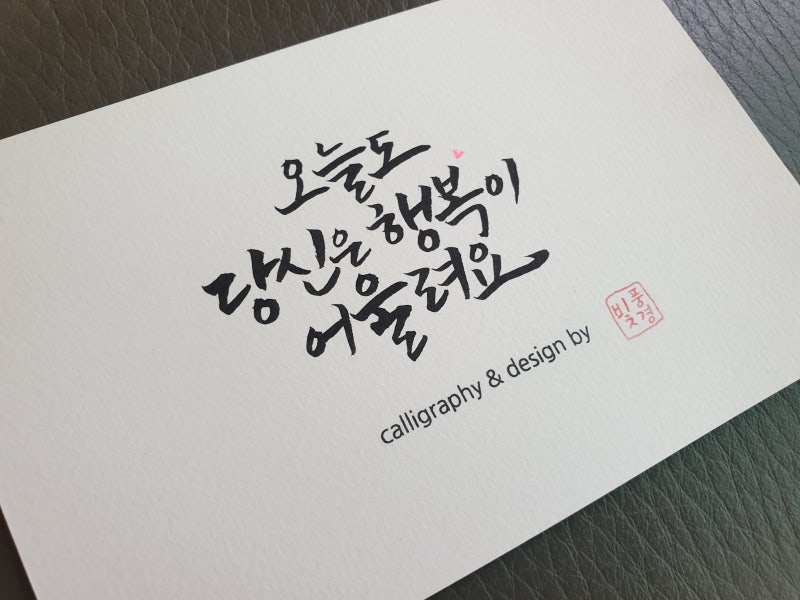 오늘도
당신은 행복이
어울려요
calligraphy & design by
빛풍경